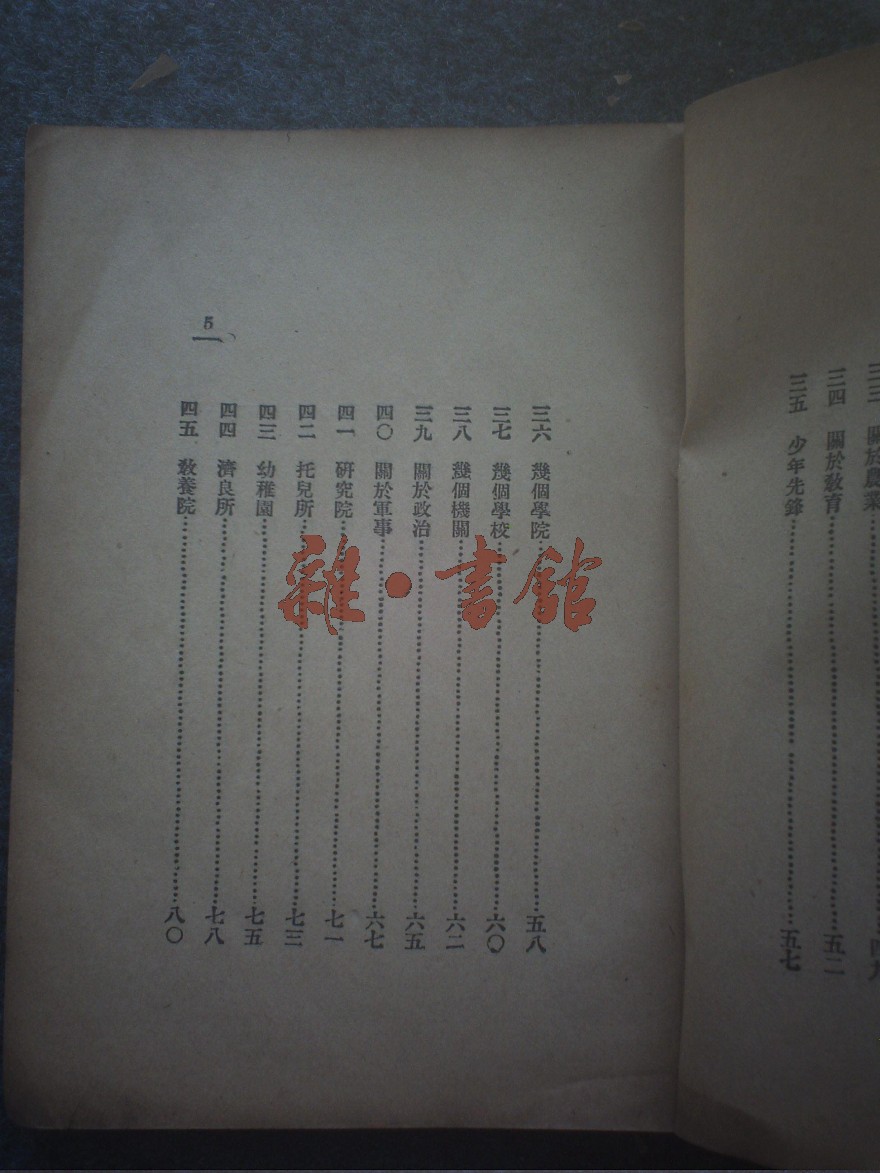 三三 關於農業……四九
三四 關於敎育……五二
三五 少年先鋒……五七
三六 幾個學院……五八
三七 幾個學校……六〇
三八 幾個機關……六二
三九 關於政治……六五
四〇 關於軍事……六七
四一 硏究院……七一
四二 托兒所……七三
四三 幼稚園……七五
四四 濟良所……七八
四五 敎養院……八〇
5
雜·書館